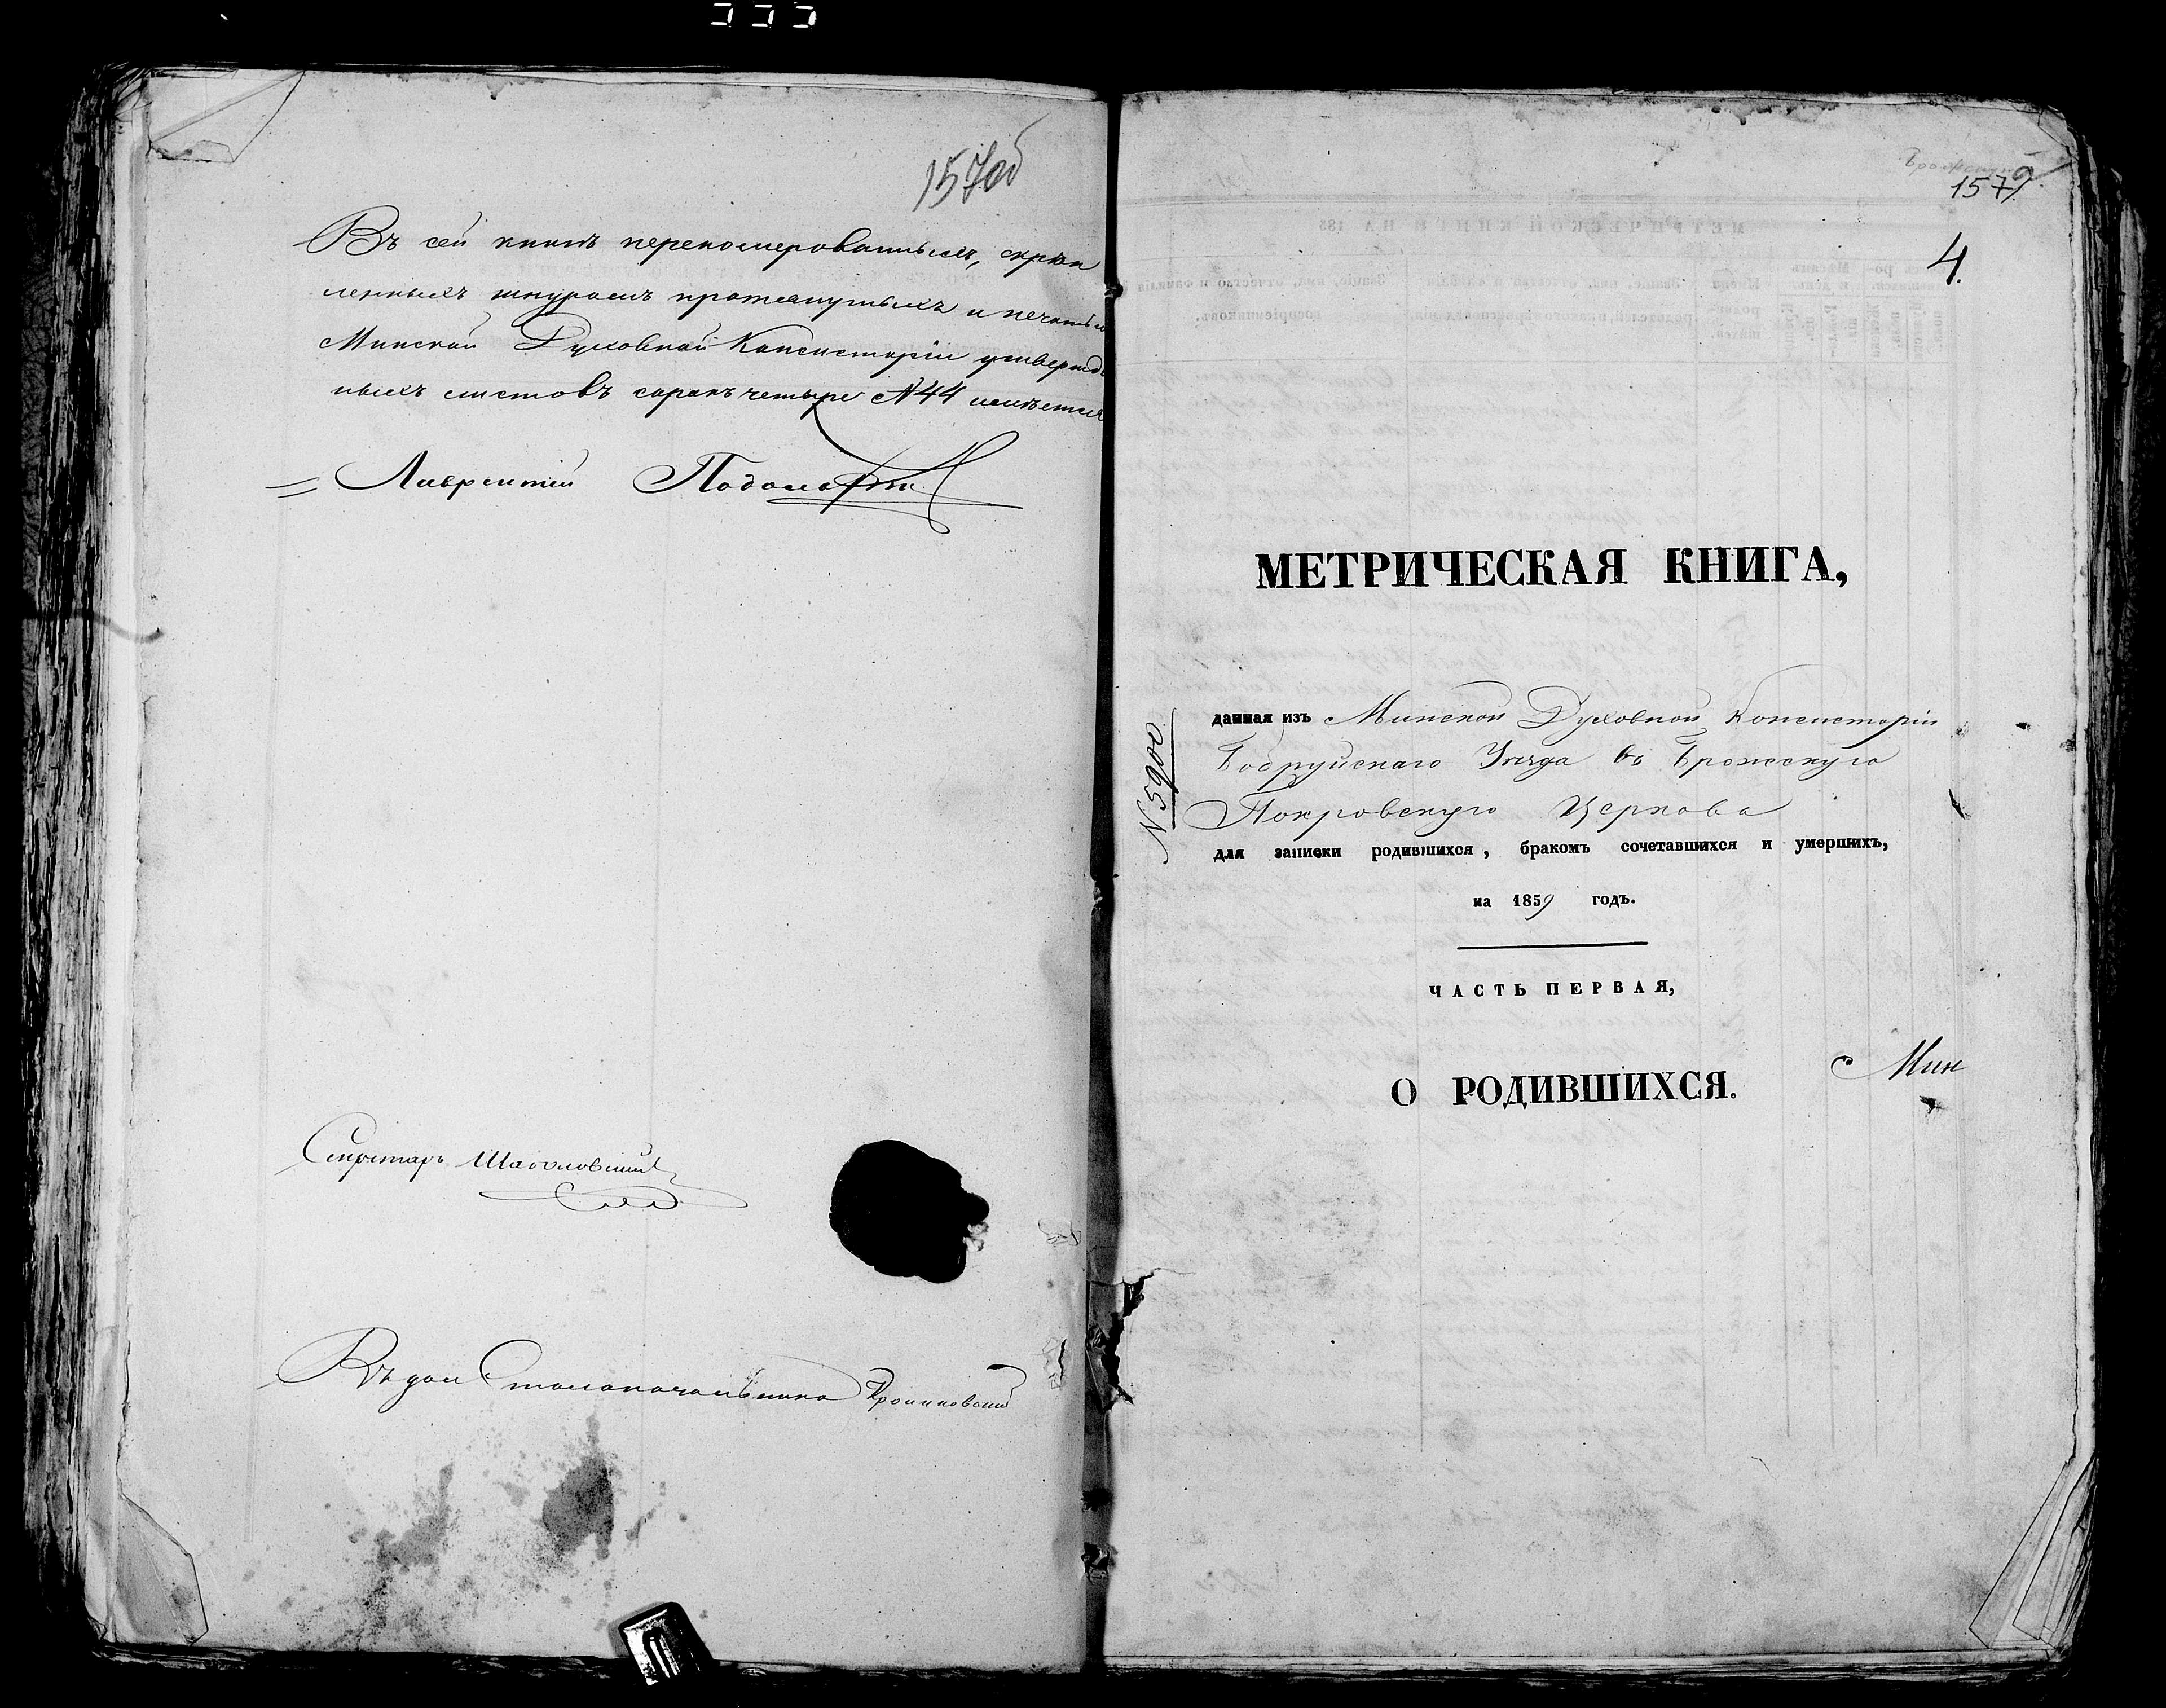 157об
Въ сей книгѣ перенумерованныхъ, скрѣп
ленныхъ шнуромъ протянутыхъ и печатью
Минской Духовной Консисторіи утвержд
ныхъ листовъ сорокъ четыре №44 имѣется
Лаврентій
Секретарь
Въ дол Столоначальника
157
4.
МЕТРИЧЕСКАЯ КНИГА,
№5900
данная изъ Минской Духовной Консисторіи
Бобруйскаго Уѣзда въ Брожскую
Покровскую Церковь
для записки родившихся, бракомъ сочетавшихся и умершихъ,
на 1859 годъ.
ЧАСТЬ ПЕРВАЯ,
О РОДИВШИХСЯ.
Мин